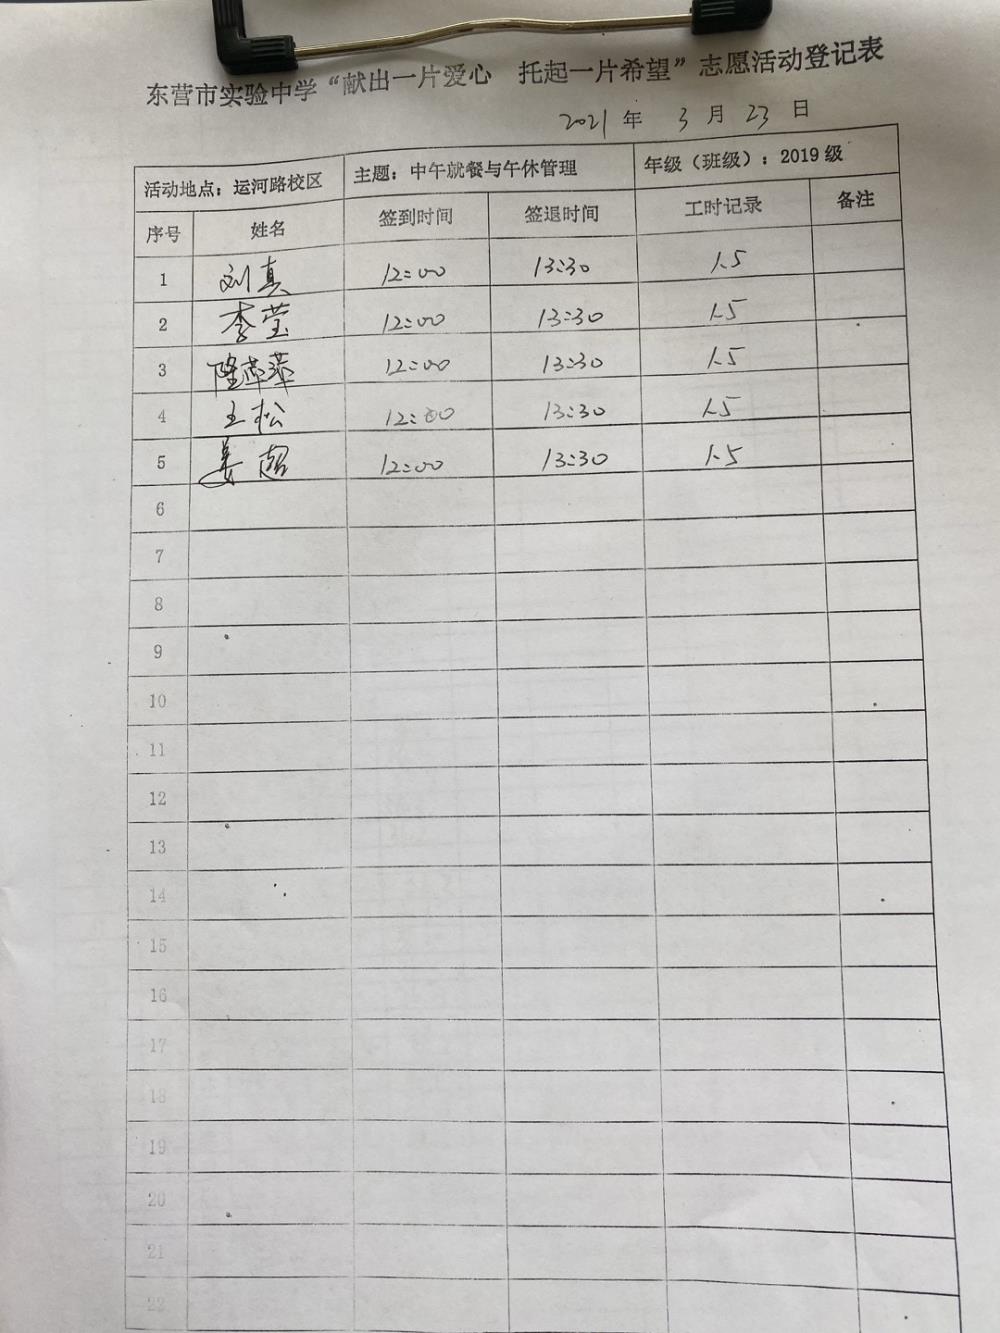 东营市实验中学“献出一片爱心 托起一片希望”志愿活动登记表
2021 年 3 月 23 日
活动地点：运河路校区 主题：中午就餐与午休管理 年级（班级）：2019 级
序号 姓名 签到时间 签退时间 工时记录 备注
1 刘真 12:00 13:30 1.5
2 李莹 12:00 13:30 1.5
3 12:00 13:30 1.5
4 王松 12:00 13:30 1.5
5 姜超 12:00 13:30 1.5
6
7
8
9
10
11
12
13
14
15
16
17
18
19
20
21
22